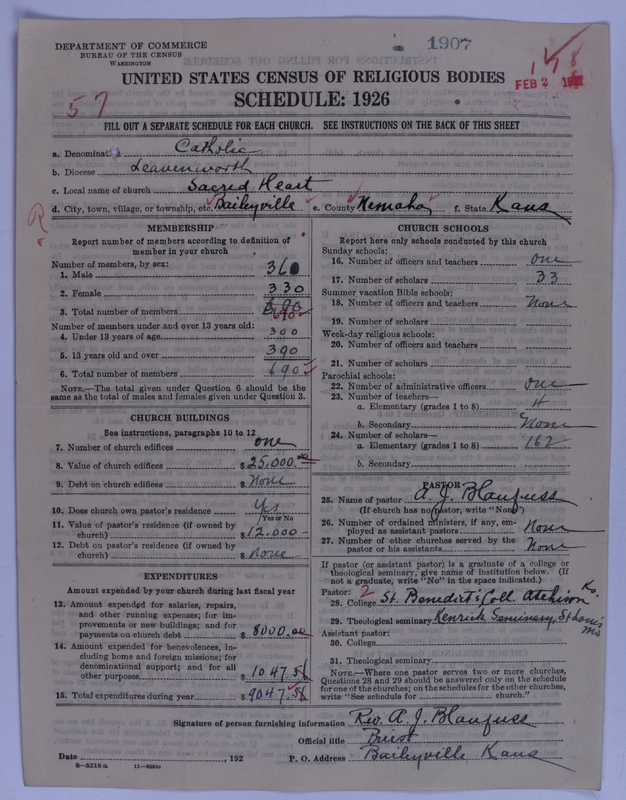 DEPARTMENT OF COMMERCE
BUREAU OF THE CENSUS
WASHINGTON
1907
178
FEB 2
UNITED STATES CENSUS OF RELIGIOUS BODIES
SCHEDULE: 1926
57
FILL OUT A SEPARATE SCHEDULE FOR EACH CHURCH. SEE INSTRUCTIONS ON THE BACK OF THIS SHEET
a. Denomination Catholic
b. Diocese Leavenworth
c. Local name of church Sacred Heart
d. City, town, village, or township, etc. Baileyville e. County Nemaha f. State Kans
MEMBERSHIP
Report number of members according to definition of member in your church
Number of members, by sex:
1. Male 360
2. Female 330
3. Total number of members 690
Number of members under and over 13 years old:
4. Under 13 years of age 300
5. 13 years old and over 390
6. Total number of members 690
NOTE.—The total given under Question 6 should be the same as the total of males and females given under Question 3.
CHURCH BUILDINGS
See instructions, paragraphs 10 to 12
7. Number of church edifices one
8. Value of church edifices $25,000.00
9. Debt on church edifices $None
10. Does church own pastor's residence Yes
Yes or No
11. Value of pastor's residence (if owned by church) $12,000
12. Debt on pastor's residence (if owned by church) $none
EXPENDITURES
Amount expended by your church during last fiscal year
13. Amount expended for salaries, repairs, and other running expenses; for improvements or new buildings; and for payments on church debt $8000.00
14. Amount expended for benevolences, including home and foreign missions; for denominational support; and for all other purposes $1047.56
15. Total expenditures during year $9047.56
CHURCH SCHOOLS
Report here only schools conducted by this church
Sunday schools:
16. Number of officers and teachers one
17. Number of scholars 33
Summer vacation Bible schools:
18. Number of officers and teachers None
19. Number of scholars
Week-day religious schools:
20. Number of officers and teachers
21. Number of scholars
Parochial schools:
22. Number of administrative officers one
23. Number of teachers—
a. Elementary (grades 1 to 8) 4
b. Secondary None
24. Number of scholars—
a. Elementary (grades 1 to 8) 162
b. Secondary
PASTOR
25. Name of pastor A. J. Blaufuss
(If church has no pastor, write "None")
26. Number of ordained ministers, if any, employed as assistant pastors None
27. Number of other churches served by the pastor or his assistants None
If pastor (or assistant pastor) is a graduate of a college or theological seminary, give name of institution below. (If not a graduate, write "No" in the space indicated.)
Pastor: 2
28. College St. Benedict's Coll. Atchison K.
29. Theological seminary Kenrick Seminary, St Louis Mo
Assistant pastor:
30. College
31. Theological seminary
NOTE.—Where one pastor serves two or more churches, Questions 28 and 29 should be answered only on the schedule for one of the churches; on the schedules for the other churches, write "See schedule for church."
Signature of person furnishing information Rev. A. J. Blaufuss
Official title Priest
Date , 192 P. O. Address Baileyville Kans
8—5518a 11—9664a